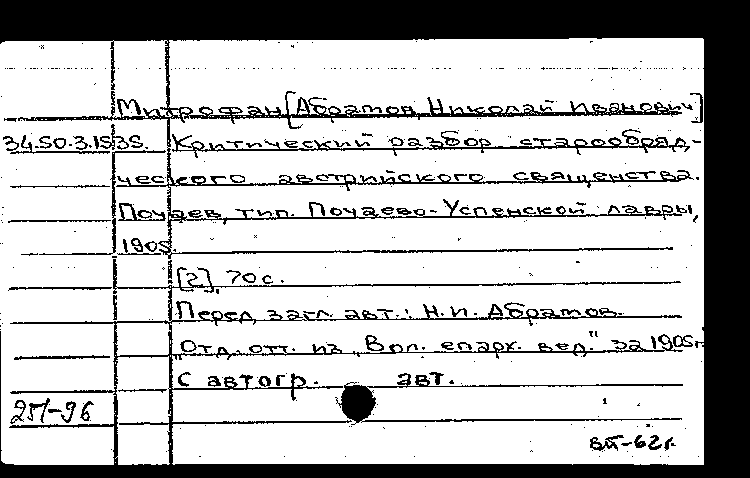 Митрофан [Абрамов, Николай Иванович]
34.50.3.1535. Критический разбор старообряд-
ческого австрийского священства.
Почаев, тип. Почаево-Успенской лавры,
1905.
[2], 70 с.
Перед загл. авт.: Н. И. Абрамов.
"Отд. отт. из "Вол. епарх. вед." за 1905 г.
С автогр. авт.